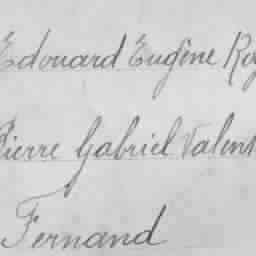 Edouard Eugène Rog
Pierre Gabriel Valent
Fernand